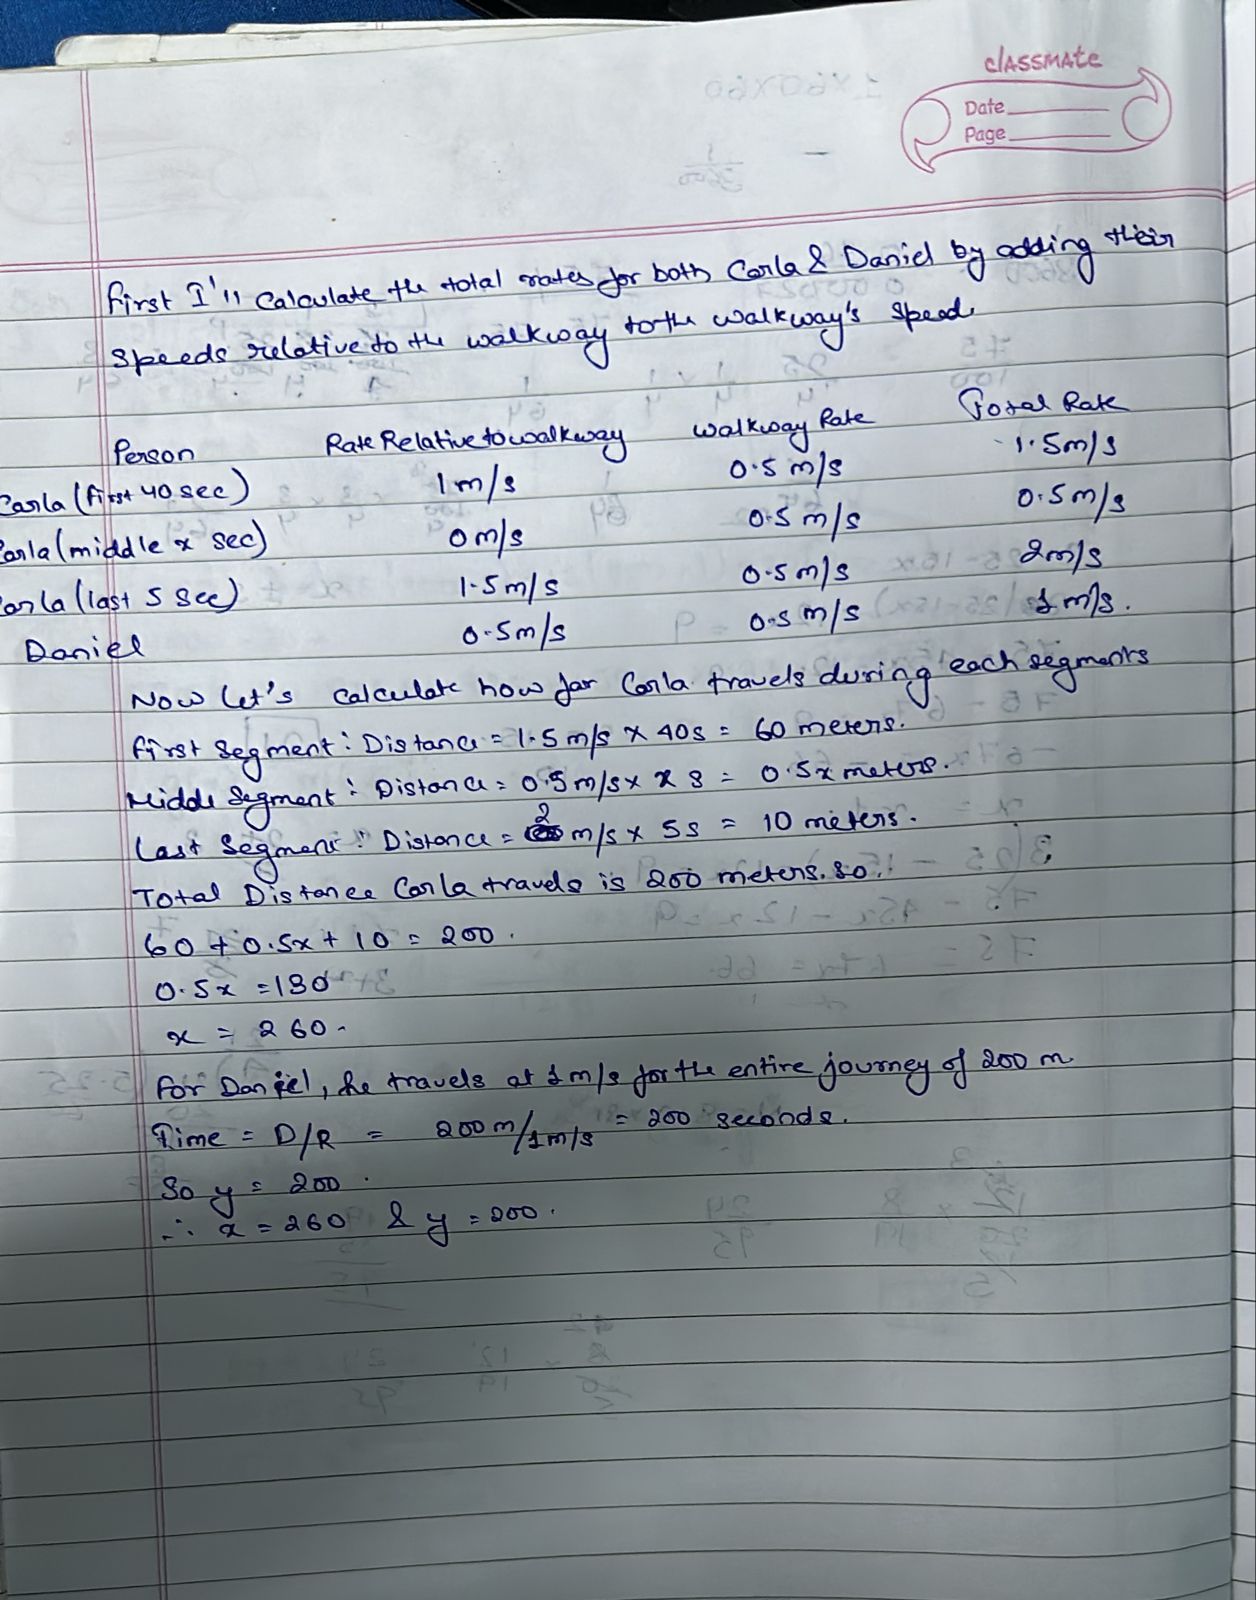 classmate
Date
Page
First I'll Calculate the total rates for both Carla & Daniel by adding their
speeds relative to the walkway to the walkway's speed.
Person Rate Relative to walkway walkway Rate Total Rate
Carla (first 40 sec) 1 m/s 0.5 m/s 1.5 m/s
Carla (middle x sec) 0 m/s 0.5 m/s 0.5 m/s
Carla (last 5 sec) 1.5 m/s 0.5 m/s 2 m/s
Daniel 0.5 m/s 0.5 m/s 1 m/s.
Now let's calculate how far Carla travels during each segments
First segment: Distance = 1.5 m/s × 40s = 60 meters.
Middle Segment: Distance = 0.5 m/s × x s = 0.5x meters.
Last Segment: Distance = 2 m/s × 5s = 10 meters.
Total Distance Carla travels is 200 meters. so.
60 + 0.5x + 10 = 200.
0.5x = 130
x = 260.
For Daniel, he travels at 1 m/s for the entire journey of 200 m.
Time = D/R = 200 m/1 m/s = 200 seconds.
So y = 200.
∴ x = 260 & y = 200.